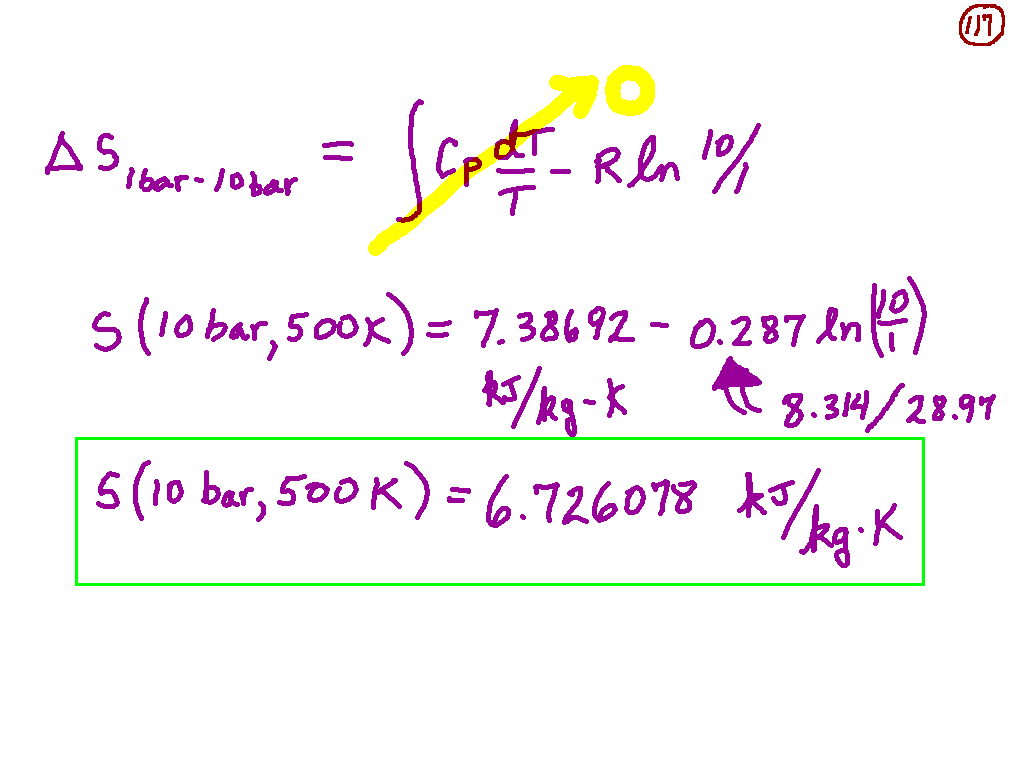 117
ΔS 1bar-10bar = ∫ Cp dT/T - R ln 10/1
0
S(10 bar, 500K) = 7.38692 - 0.287 ln(10/1)
kJ/kg-K
8.314/28.97
S(10 bar, 500K) = 6.726078 kJ/kg·K